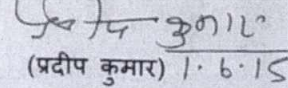 प्रदीप कुमार
(प्रदीप कुमार) 1.6.15